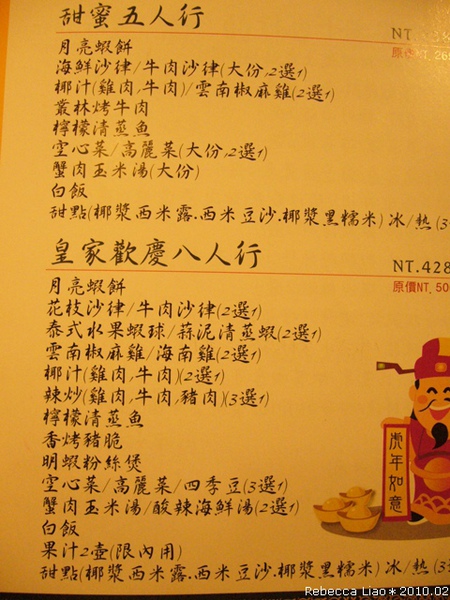 甜蜜五人行
NT
原價NT. 269
月亮蝦餅
海鮮沙律/牛肉沙律(大份,2選1)
椰汁(雞肉,牛肉)/雲南椒麻雞(2選1)
叢林烤牛肉
檸檬清蒸魚
空心菜/高麗菜(大份,2選1)
蟹肉玉米湯(大份)
白飯
甜點(椰漿西米露.西米豆沙.椰漿黑糯米) 冰/熱 (3
皇家歡慶八人行
NT.428
原價NT. 50
月亮蝦餅
花枝沙律/牛肉沙律(2選1)
泰式水果蝦球/蒜泥清蒸蝦(2選1)
雲南椒麻雞/海南雞(2選1)
椰汁(雞肉,牛肉)(2選1)
辣炒(雞肉,牛肉,豬肉)(3選1)
檸檬清蒸魚
香烤豬脆
明蝦粉絲煲
空心菜/高麗菜/四季豆(3選1)
蟹肉玉米湯/酸辣海鮮湯(2選1)
白飯
果汁2壺(限內用)
甜點(椰漿西米露.西米豆沙.椰漿黑糯米) 冰/熱 (3
虎年如意
Rebecca Liao*2010.02